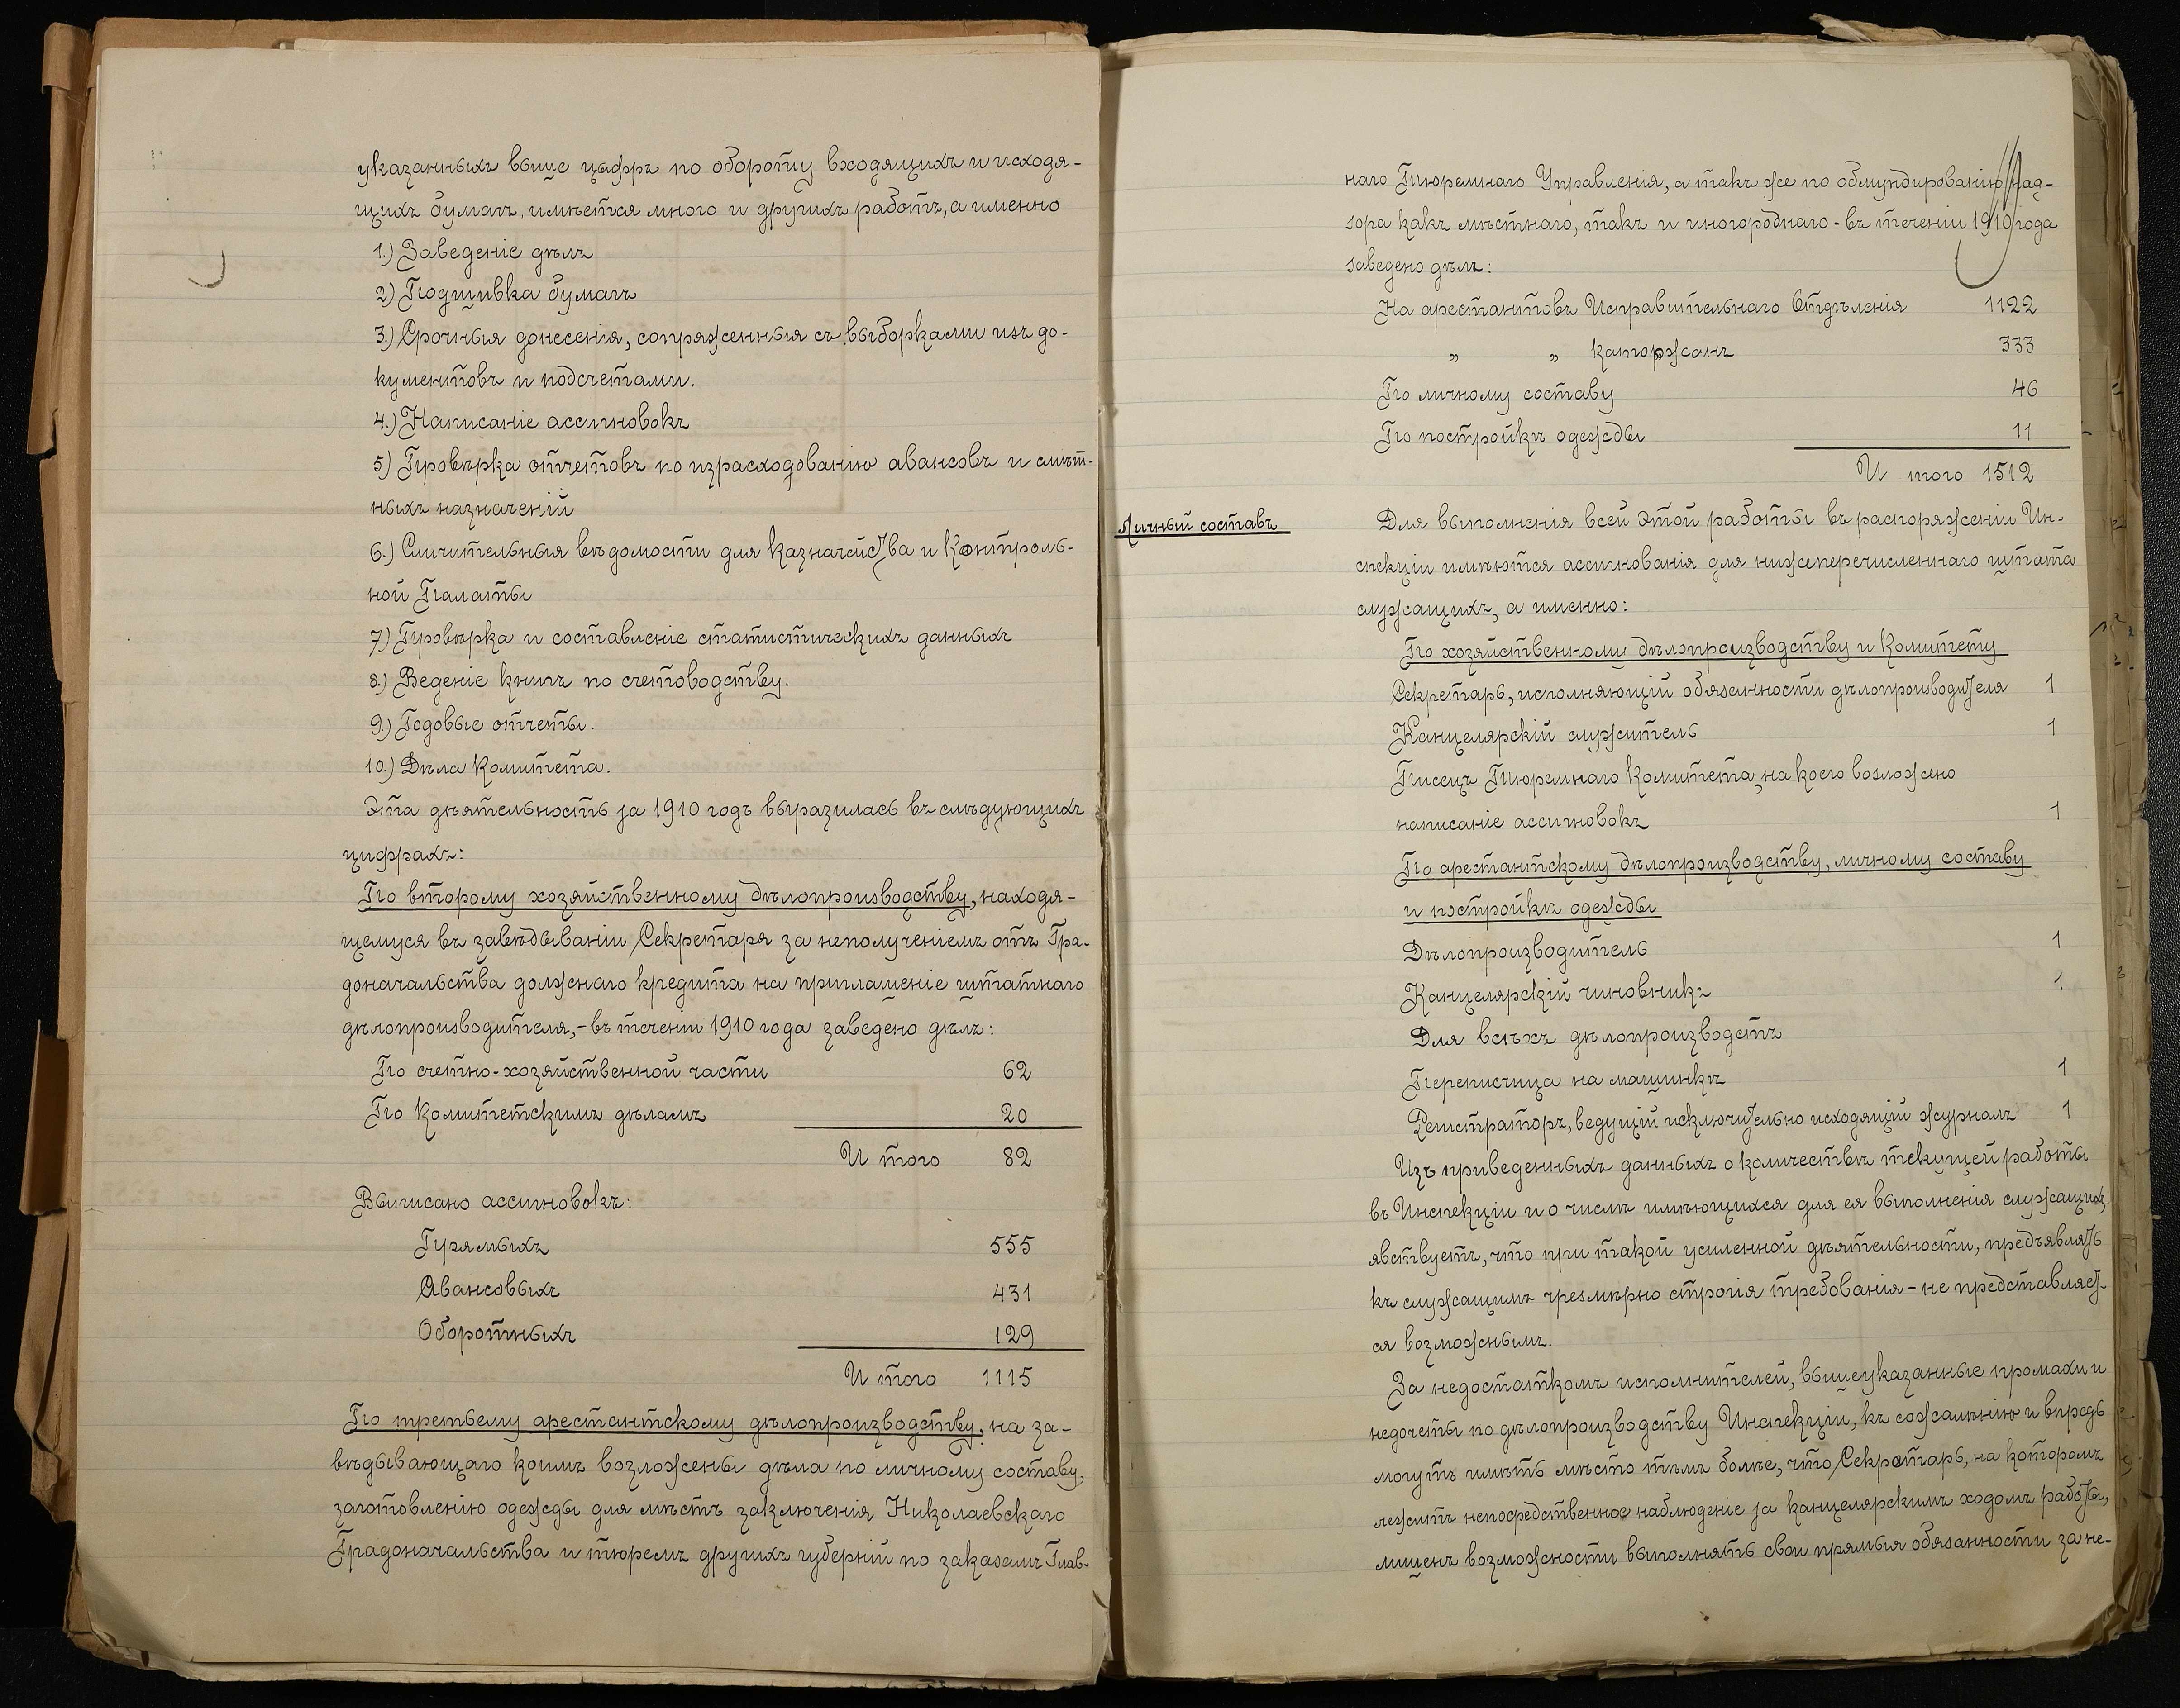 указанныхъ выше цыфръ по обороту входящихъ и исходя-
щихъ бумагъ, имѣется много и другихъ работъ, а именно
1.) Заведеніе дѣлъ
2) Подшивка бумагъ
3.) Срочныя донесенія, сопряженныя съ выборками изъ до-
кументовъ и подсчетами.
4.) Написаніе ассигновокъ
5) Провѣрка отчетовъ по израсходованію авансовъ и смѣт-
ныхъ назначеній
6.) Сличительныя вѣдомости для Казначейства и Контроль-
ной Палаты
7) Провѣрка и составленіе статистическихъ данныхъ
8.) Веденіе книгъ по счетоводству.
9.) Годовые отчеты.
10.) Дѣла Комитета.
Эта дѣятельность за 1910 годъ выразилась въ слѣдующихъ
цифрахъ:
По второму хозяйственному дѣлопроизводству, находя-
щемуся въ завѣдываніи Секретаря за неполученіемъ отъ Гра-
доначальства должнаго кредита на приглашеніе штатнаго
дѣлопроизводителя, - въ теченіи 1910 года заведено дѣлъ:
По счетно-хозяйственной части 62
По Комитетскимъ дѣламъ 20
И того 82
Выписано ассигновокъ:
Прямыхъ 555
Авансовыхъ 431
Оборотныхъ 129
И того 1115
По третьему арестантскому дѣлопроизводству, на за-
вѣдывающаго коимъ возложены дѣла по личному составу,
заготовленію одежды для мѣстъ заключенія Николаевскаго
Градоначальства и тюремъ другихъ губерній по заказамъ Глав-
наго Тюремнаго Управленія, а такъ же по обмундированію над-
зора какъ мѣстнаго, такъ и иногороднаго - въ теченіи 1910 года
заведено дѣлъ:
На арестантовъ Исправительнаго Отдѣленія 1122
" " каторжанъ 333
По личному составу 46
По постройкѣ одежды 11
И того 1512
Личный составъ
Для выполненія всей этой работы въ распоряженіи Ин-
спекціи имѣются ассигнованія для нижеперечисленнаго штата
служащихъ, а именно:
По хозяйственному дѣлопроизводству и Комитету
Секретарь, исполняющій обязанности дѣлопроизводителя 1
Канцелярскій служитель 1
Писецъ Тюремнаго Комитета, на коего возложено
написаніе ассигновокъ 1
По арестантскому дѣлопроизводству, личному составу
и постройкѣ одежды
Дѣлопроизводитель 1
Канцелярскій чиновникъ 1
Для всѣхъ дѣлопроизводстъ
Переписчица на машинкѣ 1
Регистраторъ, ведущій исключительно исходящій журналъ 1
Изъ приведенныхъ данныхъ о количествѣ текущей работы
въ Инспекціи и о числѣ имѣющихся для ея выполненія служащихъ,
явствуетъ, что при такой усиленной дѣятельности, предъявлять
къ служащимъ чрезмѣрно строгія требованія - не представляет-
ся возможнымъ.
За недостаткомъ исполнителей, вышеуказанные промахи и
недочеты по дѣлопроизводству Инспекціи, къ сожалѣнію и впредь
могутъ имѣть мѣсто тѣмъ болѣе, что Секретарь, на которомъ
лежитъ непосредственное наблюденіе за канцелярскимъ ходомъ работы,
лишенъ возможности выполнять свои прямыя обязанности за не-